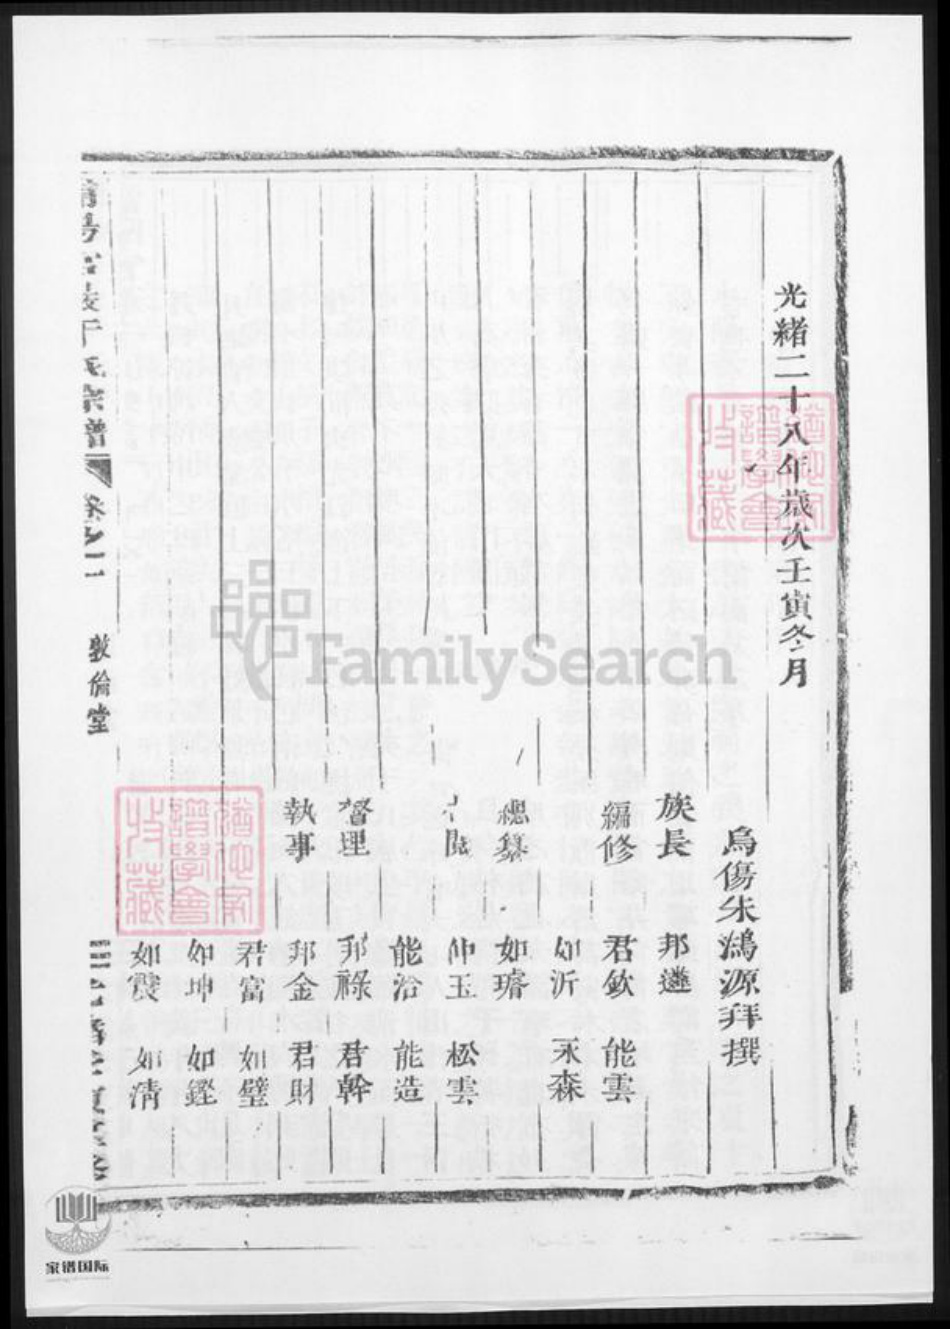 光緒二十八年歲次壬寅冬月
烏傷朱鴻源拜撰
族長 邦遴
編修 君欽 能雲
如沂 永森
總纂 如璿
仲玉 松雲
能浴 能造
督理 邦祿 君幹
執事 邦金 君財
君富 如璧
如坤 如鏗
如霞 如清
氏宗譜 卷之一 敦倫堂
FamilySearch
收藏
譜學會
收藏
譜學會
家谱国际